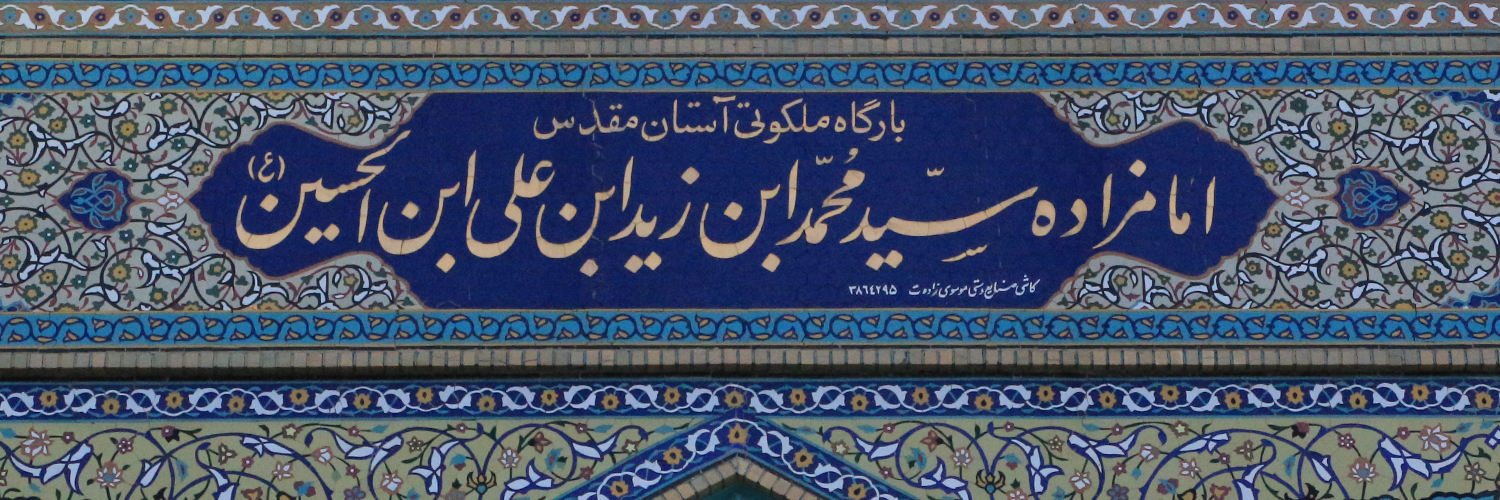 بارگاه ملکوتی آستان مقدس
امامزاده سیّد مُحمّد ابن زید ابن علی ابن الحسین (ع)
کاشی صنایع دستی موسوی زاده ت ۳۸٦٤۲۹۵